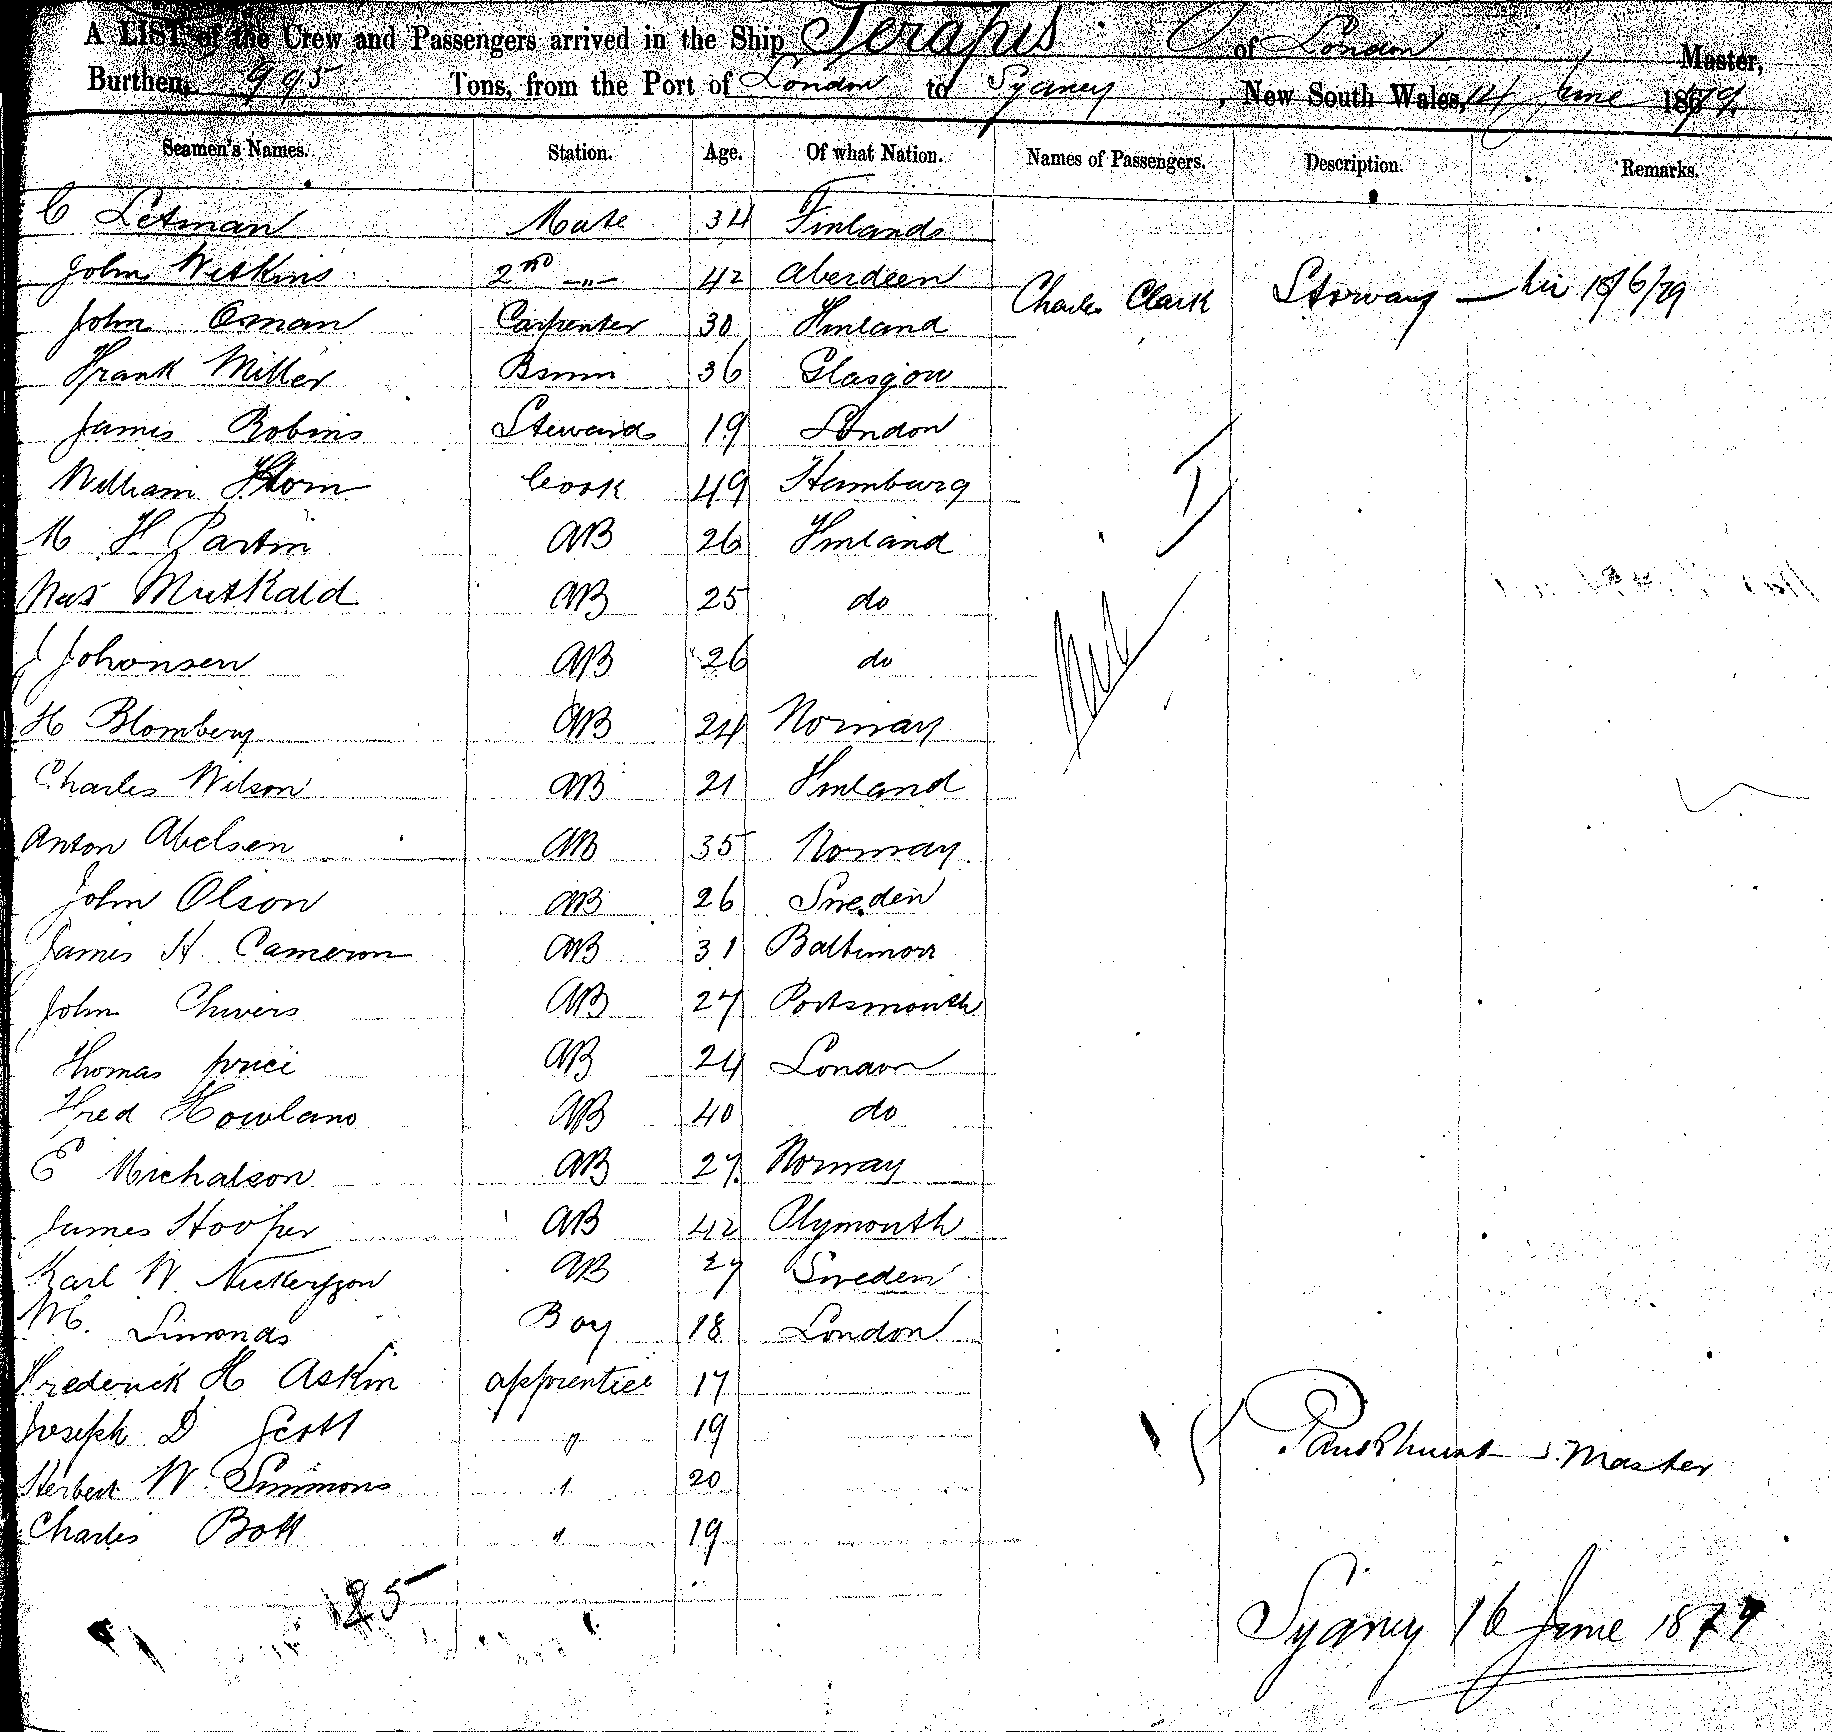 A LIST of the Crew and Passengers arrived in the Ship Serapis of London Master,
Burthen, 995 Tons, from the Port of London to Sydney, New South Wales, 14 June 1879
Seamen's Names. Station. Age. Of what Nation. Names of Passengers. Description. Remarks.
C Letman Mate 34 Finland
John Watkins 2nd -"- 42 Aberdeen
Charles Clark Stowaway 6/79
John Oman Carpenter 30 Finland
Frank Miller 36 Glasgow
James Robins Stewards 19 London
William Horn Cook 49 Hamburg
M H Partin AB 26 Finland
AB 25 do
J Johansen AB 26 do
H Blomberg AB 24 Norway
Nil
Charles Wilson AB 21 Finland
Anton Abelsen AB 35 Norway
John Olson AB 26 Sweden
James H Cameron AB 31 Baltimore
John Chivers AB 27 Portsmouth
Thomas price AB 24 London
Fred Howland AB 40 do
E Michalson AB 27 Norway
James Hooper AB 42 Plymouth
Karl W. AB 27 Sweden
W. Simonds Boy 18 London
Frederick H Askin apprentice 17
Joseph D Scott " 19
Pankhurst Master
Herbert W. Simmons " 20
Charles Bott " 19
25
Sydney 16 June 1879